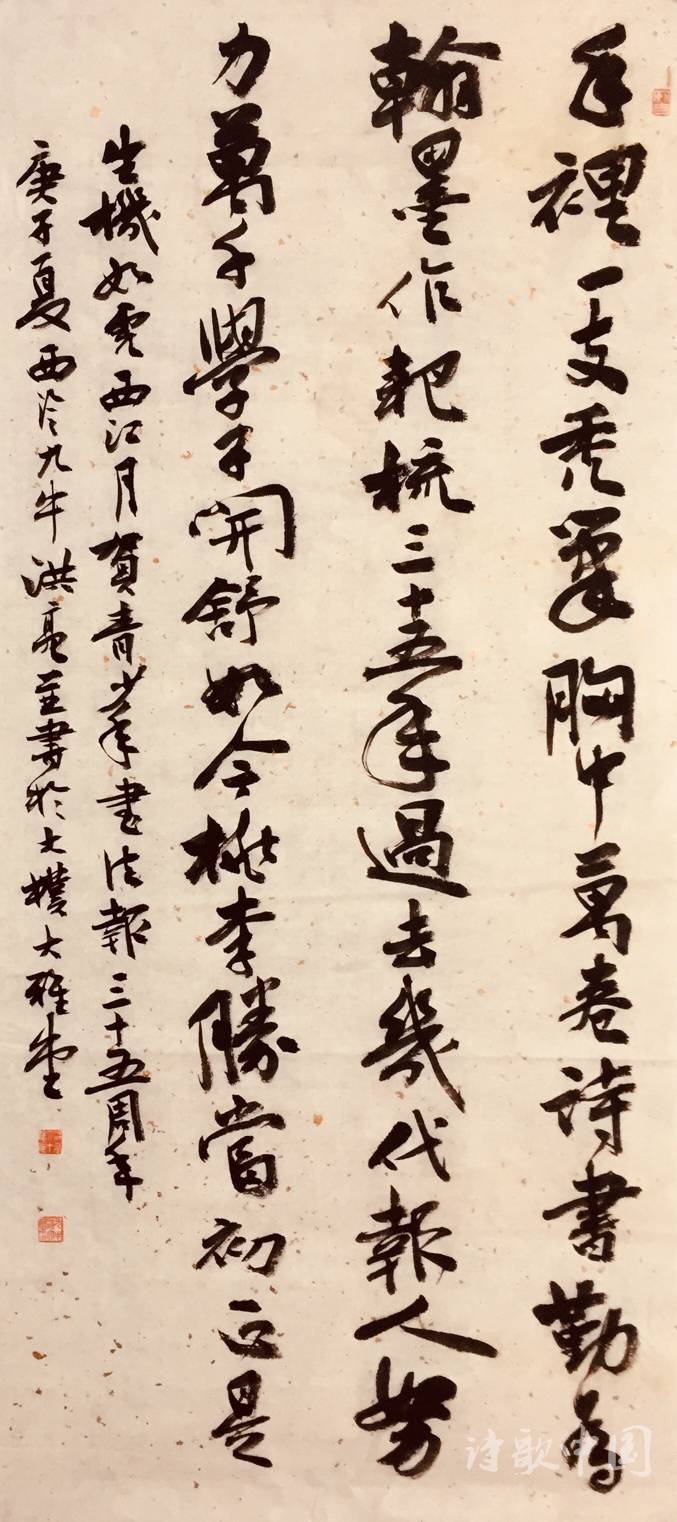 手裡一支禿筆胸中萬卷詩書勤為
翰墨作耙梳三十五年過去幾代報人努
力萬千學子開舒如今桃李勝當初正是
生機如虎西江月賀青少年書法報三十五周年
庚子夏西泠九牛洪亮並書於大樸大雅堂
诗歌中国